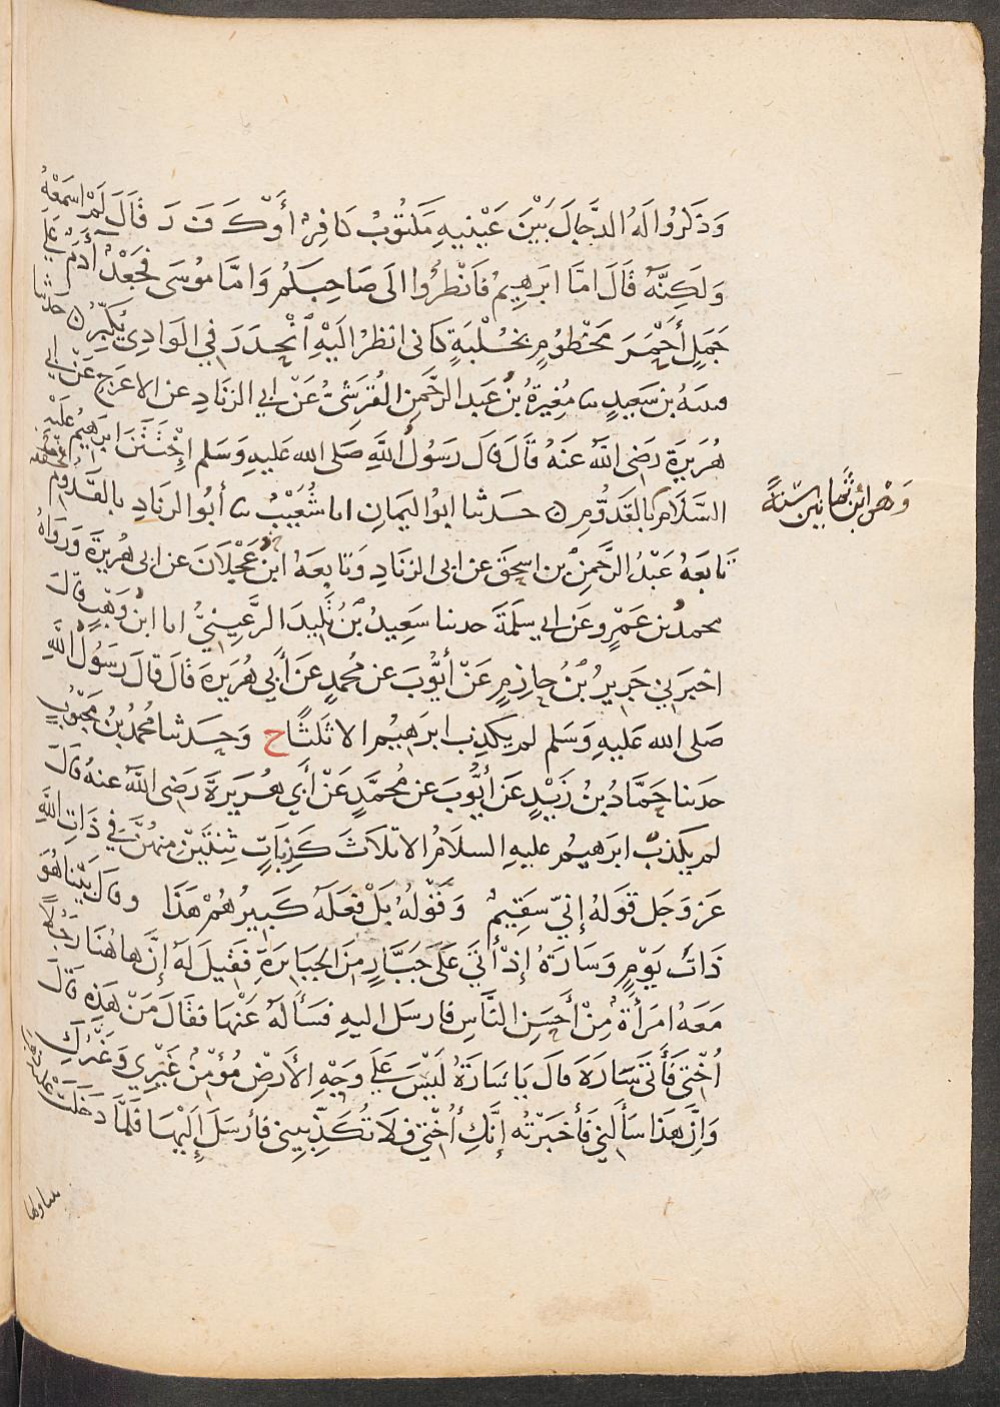 وَذَكَرُوا لَهُ الدَّجَّالَ بَيْنَ عَيْنَيْهِ مَكْتُوبٌ كَافِرٌ أَوْ كَ فَ رَ قَالَ لَمْ اسمَعْهُ
وَلَكِنَّهُ قَالَ امَّا ابرَهِيمُ فَانْظُرُوا الَى صَاحِبِكُم وَامَّا مُوسَى فَجَعْدٌ أَدَمُ عَلَى
جَمَلٍ أَحْمَرَ مَخْطُومٍ بِخُلْبَةٍ كَانى انظرُ الَيْهِ انْحَدَرَ فِي الوَادِي يُكَبِّرُ ۞ حَدثَنَا
قتيبَهُ بن سَعِيدٍ ثنا مُغِيرَةُ بْنُ عَبد الرَّحمنِ القُرَشِىُّ عَنْ ابِي الزنَادِ عن الاعرَجِ عَنْ ابي
هُرَيرَةَ رَضِىَ اللهُ عَنهُ قَالَ قَالَ رَسُولُ اللَّهِ صَلى الله عَليهِ وَسَلم اخْتَتَنَ ابرَهِيمُ عَلَيْهِ
السَّلَامُ بِالقَدُّومِ ۞ حَدثنا ابُو اليَمانِ انا شُعَيْبٌ ثنا أبُو الزنَادِ بالقَدُومِ مخففة
وَهُو ابْنُ ثَمَانِينَ سَنَةً
تَابَعَهُ عَبْدُ الرَّحمَنِ بن اسحقَ عن ابى الزنَادِ وَتَابعَهُ ابْنُ عَجْلَانَ عن ابى هُرَيرَةَ وَرَوَاهُ
محمدُ بن عَمْرٍو عَن ابي سلَمَةَ حدثنا سَعِيدُ بْنُ تَلِيدَ الرُّعَيْنِيُّ انا ابنُ وَهْبٍ قَالَ
اخبَرَنِي جَرِيرُ بْنُ حَازِمٍ عَنْ أَيُّوبَ عَن مُحمدٍ عَن أَبِي هُرَيرَةَ قَالَ قَالَ رَسُولُ اللَّهِ
صَلى الله عَليهِ وَسَلم لم يكذِب ابرَهِيمُ الا ثَلَثًا ح وَحَدثنا مُحَمدُ بْنُ مَحْبُوبٍ
حدثنا حَمَّادُ بنُ زَيْدٍ عَن أيُّوبَ عن مُحمَّدٍ عَنْ أَبِي هُرَيرَةَ رَضِىَ اللَّهُ عنهُ قالَ
لم يَكذبْ ابرَهيمُ عليهِ السلَامُ الا ثلَاثَ كَذِبَاتٍ ثِنْتَيْنِ مِنهُنَّ فِي ذَاتِ اللَّهِ
عَز وَجَل قَولهُ إِنِّي سَقِيمٌ وَقَوْلُهُ بَلْ فَعَلَهُ كَبِيرُهُمْ هَذَا وقالَ بَيْنا هُوَ
ذَاتَ يَوْمٍ وَسَارَةُ إِذْ أَتَى عَلَى جَبَّارٍ مِنَ الجَبَابِرَةِ فَقِيلَ لَهُ إِنَّ هَاهُنَا رَجُلاً
مَعَهُ امرَأَةٌ مِنْ أَحسَنِ النَّاسِ فارسَل اليهِ فَسَأَلَهُ عَنْهَا فقَالَ مَنْ هَذِهِ قَالَ
أُخْتِي فَأَتَى سَارَةَ قالَ يَا سَارَةُ لَيْسَ عَلى وَجْهِ الأَرْضِ مُؤمِنٌ غَيْرِي وَغَيْرُكِ
وَإِنَّ هَذَا سَأَلَنِي فَأَخبَرْتُه إِنَّكِ أُخْتِي فَلَا تُكَذِّبِينِي فأرسَلَ إِلَيْهَا فَلَمَّا دَخَلَتْ عَليه